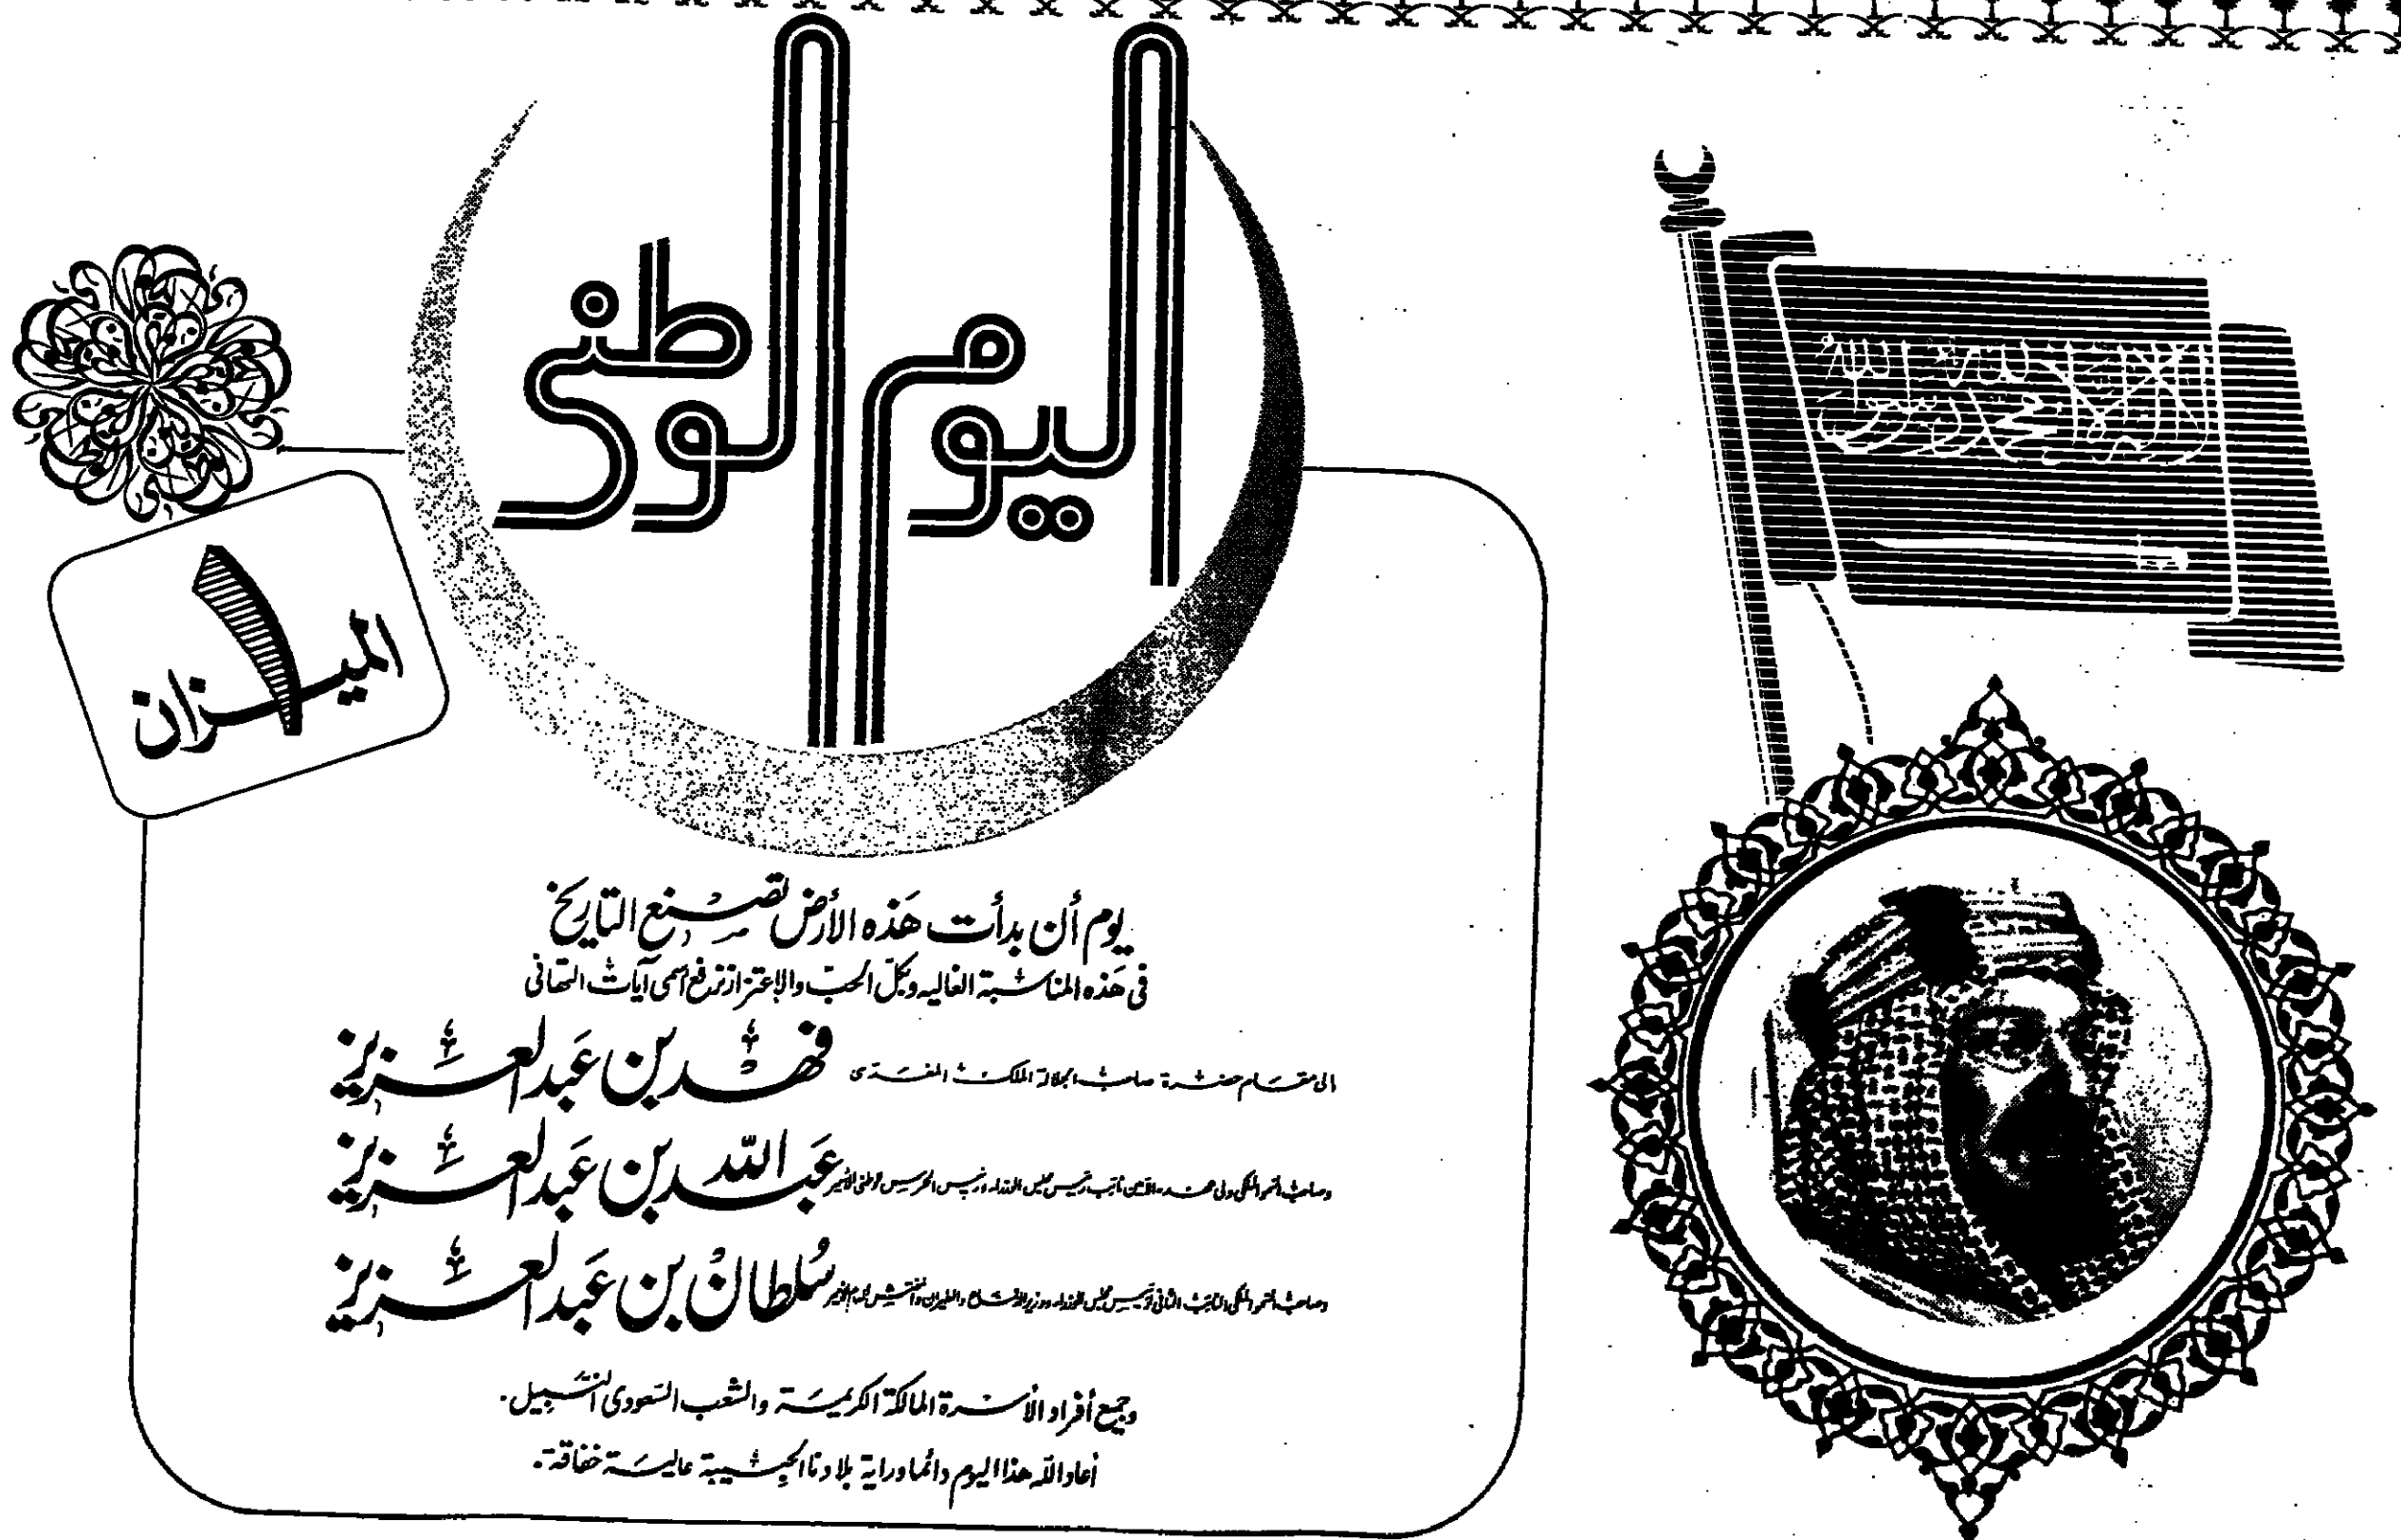 اليوم الوطني
لا إله إلا الله محمد رسول الله
١ الميزان
يوم أن بدأت هذه الأرض تصنع التاريخ
في هذه المناسبة الغاليه وبكل الحب والاعتزاز نرفع أسمى آيات التهاني
الى مقام حضرة صاحب الجلالة الملك المفدى فهد بن عبد العزيز
وصاحب السمو الملكي ولي العهد الأمين نائب رئيس مجلس الوزراء ورئيس الحرس الوطني الأمير عبد الله بن عبد العزيز
وصاحب السمو الملكي النائب الثاني لرئيس مجلس الوزراء ووزير الدفاع والطيران والمفتش العام الأمير سلطان بن عبد العزيز
وجميع أفراد الأسرة المالكة الكريمة والشعب السعودي النبيل.
أعاد الله هذا اليوم دائما وراية بلادنا الحبيبة عالية خفاقة.